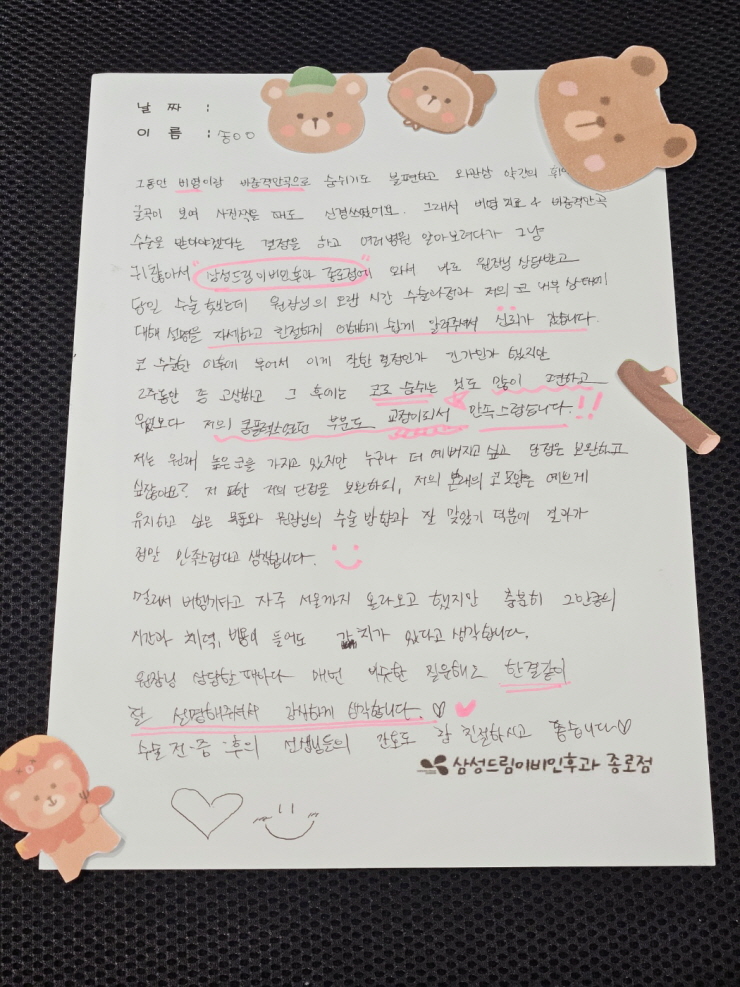 날 짜 :
이 름 : 송○○
그동안 비염이랑 비중격만곡으로 숨쉬기도 불편하고 외관상 약간의 휘
굴곡이 보여 사진찍을 때도 신경쓰였어요. 그래서 비염 치료 & 비중격만곡
수술을 받아야겠다는 결정을 하고 여러병원 알아보려다가 그냥
귀찮아서 "삼성드림이비인후과 종로점"에 와서 바로 원장님 상담받고
당일 수술 했는데 원장님의 오랜 시간 수술과 저의 코 내부 상태에
대해 설명을 자세하고 친절하게 이해하기 쉽게 알려주셔서 신뢰가 갔습니다.
코 수술한 이후에 부어서 이게 잘한 결정인가 긴가민가 했지만
2주동안 좀 고생하고 그 후에는 코로 숨쉬는 것도 많이 편하고
무엇보다 저의 콤플렉스였던 부분도 교정이되서 만족스럽습니다.!!
저는 원래 높은 코를 가지고 있지만 누구나 더 예뻐지고 싶고 단점은 보완하고
싶잖아요? 저 또한 저의 단점을 보완하되, 저의 본래의 코 모양은 예쁘게
유지하고 싶은 목표와 원장님의 수술 방향과 잘 맞았기 덕분에 결과가
정말 만족스럽다고 생각합니다.
멀리서 비행기타고 자주 서울까지 올라오고 했지만 충분히 그만큼의
시간과 체력, 비용이 들어도 가치가 있다고 생각합니다.
원장님 상담할 때마다 매번 비슷한 질문해도 한결같이
잘 설명해주셔서 감사하게 생각합니다.♡ ♥
수술 전·중·후의 선생님들의 간호도 참 친절하시고 좋습니다~♡
삼성드림이비인후과 종로점